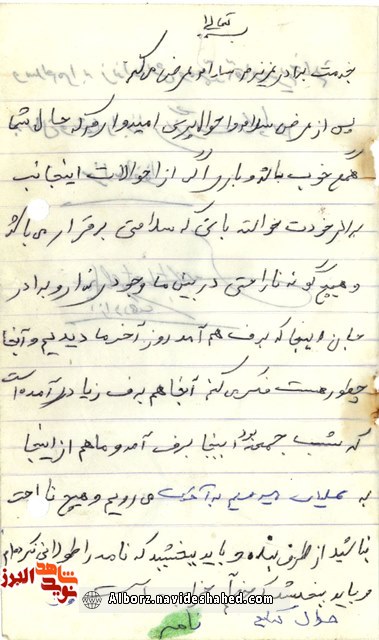 بسمه تعالی
خدمت برادر عزیزم سلام عرض می کنم
پس از عرض سلام و احوالپرسی امیدوارم که حال شما
همگی خوب باشد و باری اگر از احوالات اینجانب
برادر خودت خواسته باشی که سلامتی برقرار می باشد
و هیچ گونه ناراحتی در بین ما وجود ندارد و برادر
جان اینجا که برف هم آمد روز آخر ما دیدیم و آنجا
چطور هست فکر می کنم آنجا هم برف زیاد آمده است
که شب جمعه بود اینجا برف آمد و ما هم از اینجا
به عملیات می رویم و هیچ ناراحت
نباشید از طرف بنده و باید ببخشید که نامه را طولانی نکردم
و باید ببخشید
حلال کنید
ناصر
نوید شاهد البرز
Alborz.navideshahed.com